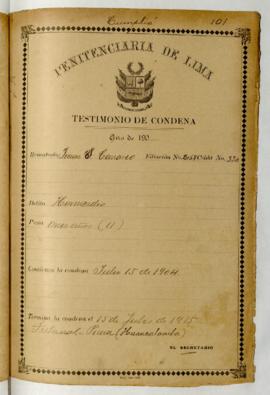 Cumplió 101
PENITENCIARIA DE LIMA
TESTIMONIO DE CONDENA
Año de 190
Rematado Tomas Filiación No. Celda No.
Delito Homicidio
Pena once años (11)
Comienza la condena Julio 15 de 1904
Termina la condena el 15 de Julio de 1915
Tribunal - Piura (Huancabamba)
EL SECRETARIO